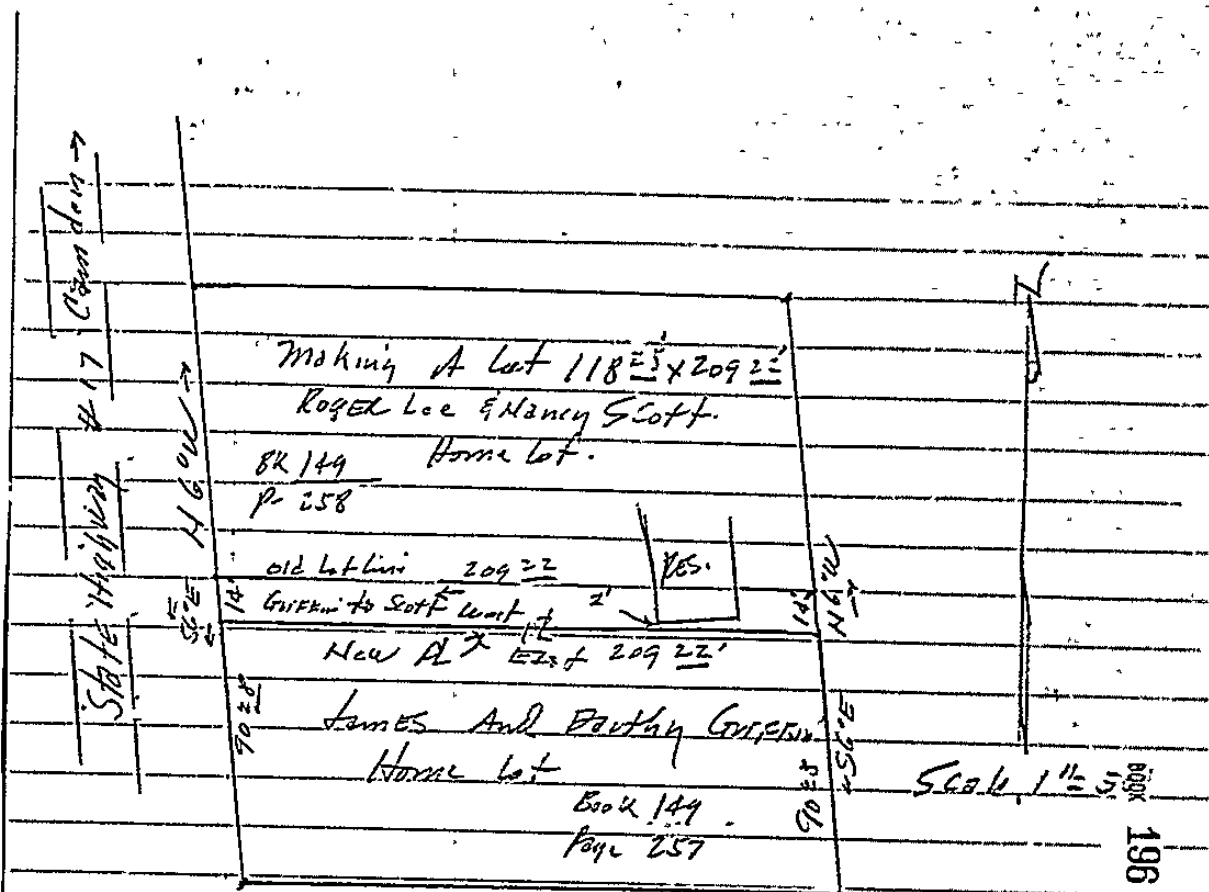 State Highway #17 Camden →
N6°W →
S6°E
N
Making A Lot 118 25' x 209 22'
Roger Lee & Nancy Scott.
Home Lot.
BK 149
P- 258
old Lot Line 209 22
RES.
14'
Griffin to Scott West
2'
14'
N6°W
New PL East 209 22'
90 28
James And Dorthy Griffin
Home Lot
Book 149
Page 257
90 28
S6°E
Scale 1"=
BOOK 196